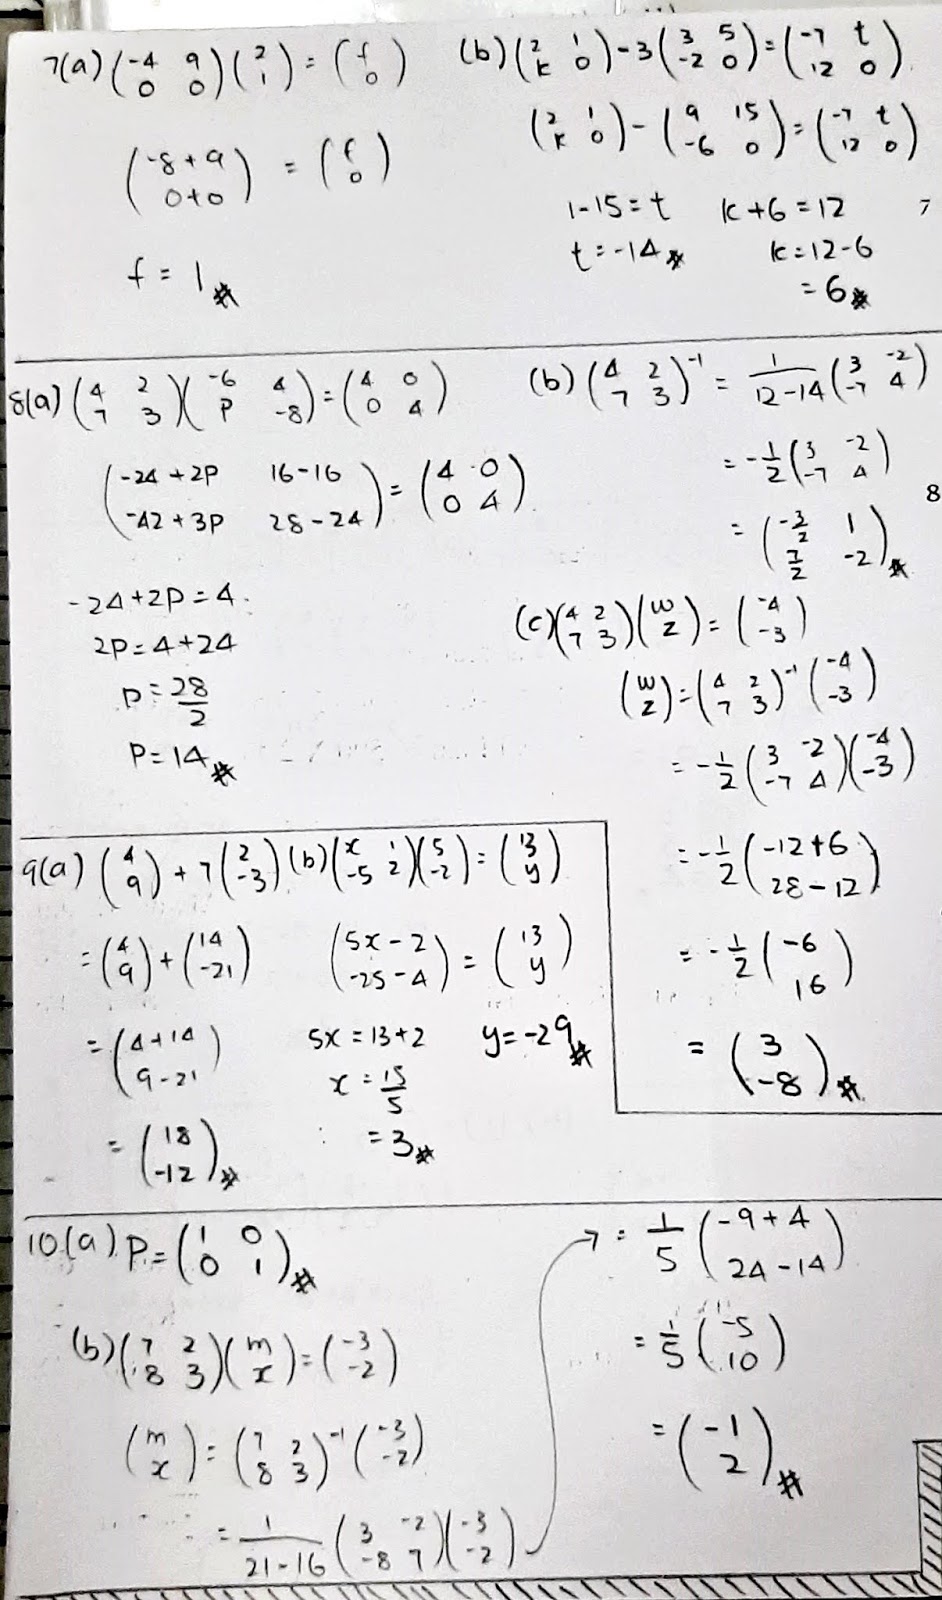 7(a) (-4 9 / 0 0)(2 / 1) = (f / 0)
(-8+9 / 0+0) = (f / 0)
f = 1 #
(b) (2 1 / k 0) - 3(3 5 / -2 0) = (-7 t / 12 0)
(2 1 / k 0) - (9 15 / -6 0) = (-7 t / 12 0)
1-15 = t k+6 = 12
t = -14 # k = 12-6
= 6 #
7
8(a) (4 2 / 7 3)(-6 4 / P -8) = (4 0 / 0 4)
(-24+2P 16-16 / -42+3P 28-24) = (4 0 / 0 4)
-24+2P = 4
2P = 4+24
P = 28/2
P = 14 #
(b) (4 2 / 7 3)^-1 = 1/(12-14) (3 -2 / -7 4)
= -1/2 (3 -2 / -7 4)
= (-3/2 1 / 7/2 -2) #
8
(c) (4 2 / 7 3)(w / z) = (-4 / -3)
(w / z) = (4 2 / 7 3)^-1 (-4 / -3)
= -1/2 (3 -2 / -7 4)(-4 / -3)
= -1/2 (-12+6 / 28-12)
= -1/2 (-6 / 16)
= (3 / -8) #
9(a) (4 / 9) + 7(2 / -3)
= (4 / 9) + (14 / -21)
= (4+14 / 9-21)
= (18 / -12) #
(b) (x 1 / -5 2)(5 / -2) = (13 / y)
(5x-2 / -25-4) = (13 / y)
5x = 13+2 y = -29 #
x = 15/5
= 3 #
10(a) P = (1 0 / 0 1) #
(b) (7 2 / 8 3)(m / x) = (-3 / -2)
(m / x) = (7 2 / 8 3)^-1 (-3 / -2)
= 1/(21-16) (3 -2 / -8 7)(-3 / -2)
= 1/5 (-9+4 / 24-14)
= 1/5 (-5 / 10)
= (-1 / 2) #